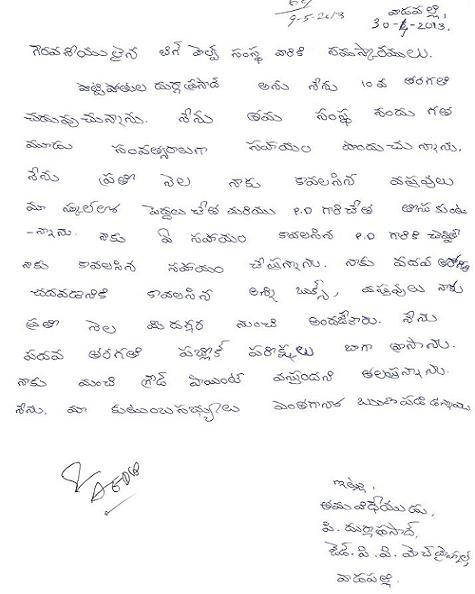 9-5-2013
వాడపల్లి,
30-4-2013.
గౌరవనీయులైన బిగ్ హెల్ప్ సంస్థ వారికి నమస్కారములు.
దుర్గాప్రసాద్ అను నేను 10వ తరగతి
చదువుచున్నాను. నేను తమ సంస్థ నందు గత
మూడు సంవత్సరాలుగా సహాయం పొందుచున్నాను.
నేను ప్రతి నెల నాకు కావలసిన వస్తువులు
మా స్కూల్లోని పెద్దలు చేత మరియు P.D గారిచేత తీసుకుంటు
-న్నాను. నాకు ఏ సహాయం కావలసిన P.D గారికి చెప్తే
నాకు కావలసిన సహాయం చేస్తున్నారు. నాకు పదవ తరగతి
చదవడానికి కావలసిన అన్ని బుక్స్, వస్తువులు నాకు
ప్రతి నెల మీ దగ్గర నుంచి అందజేశారు. నేను
పదవ తరగతి పబ్లిక్ పరీక్షలు బాగా వ్రాసాను.
నాకు మంచి గ్రేడ్ పాయింట్ వస్తుందని తలస్తున్నాను.
నేను, మా కుటుంబసభ్యులు ఎంతగానో ఋణపడి ఉన్నాము
ఇట్లు,
తమ విధేయుడు,
పి. దుర్గాప్రసాద్,
జెడ్.పి.పి.హెచ్.స్కూల్
వాడపల్లి.